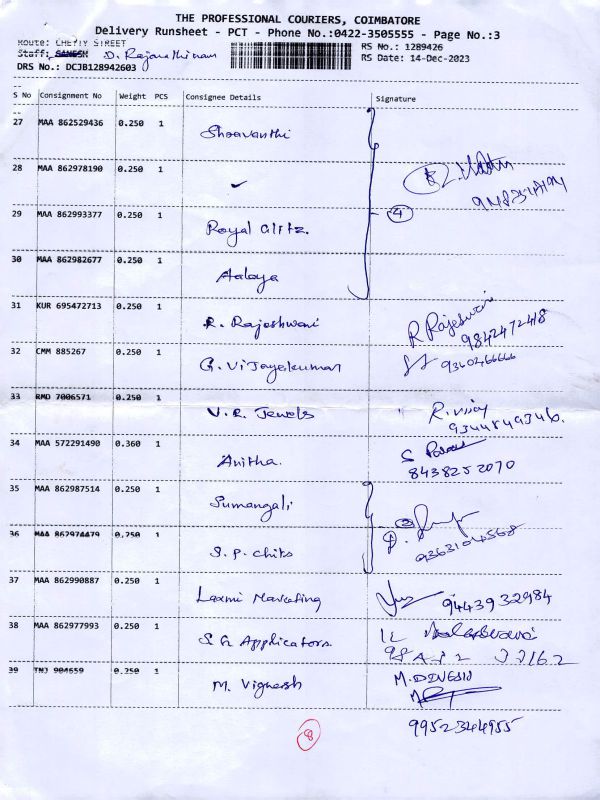 THE PROFESSIONAL COURIERS, COIMBATORE
Delivery Runsheet - PCT - Phone No.:0422-3505555 - Page No.:3
Route: CHETTY STREET
RS No.: 1289426
Staff: D. Rajarathinam
RS Date: 14-Dec-2023
DRS No.: DCJB128942603
S No Consignment No Weight PCS Consignee Details Signature
27 MAA 862529436 0.250 1
28 MAA 862978190 0.250 1
29 MAA 862993377 0.250 1 Royal Glitz. 4
30 MAA 862982677 0.250 1 Aalaya
31 KUR 695472713 0.250 1 R. Rajeshwari R Rajeswari
9842472418
32 CMM 885267 0.250 1 G. Vijayakumar 9360466666
33 RMD 7006571 0.250 1 V.R. Jewels R. vijay
9344849346.
34 MAA 572291490 0.360 1 Anitha.
8438252070
35 MAA 862987514 0.250 1 Sumangali
36 MAA 862974479 0.250 1 S.P. Chits 9363104568
37 MAA 862990887 0.250 1 Laxmi Marketing 9443932984
38 MAA 862977993 0.250 1 S G Applicators.
39 TNJ 904659 0.250 1 M. Vignesh M. DINESH
9952344955
8